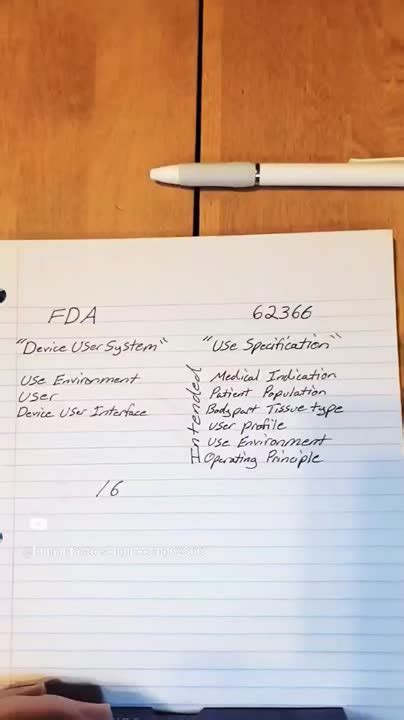 FDA
"Device User System"
Use Environment
User
Device User Interface
16
62366
"Use Specification"
Intended
Medical Indication
Patient Population
Bodypart Tissue type
User profile
Use Environment
Operating Principle